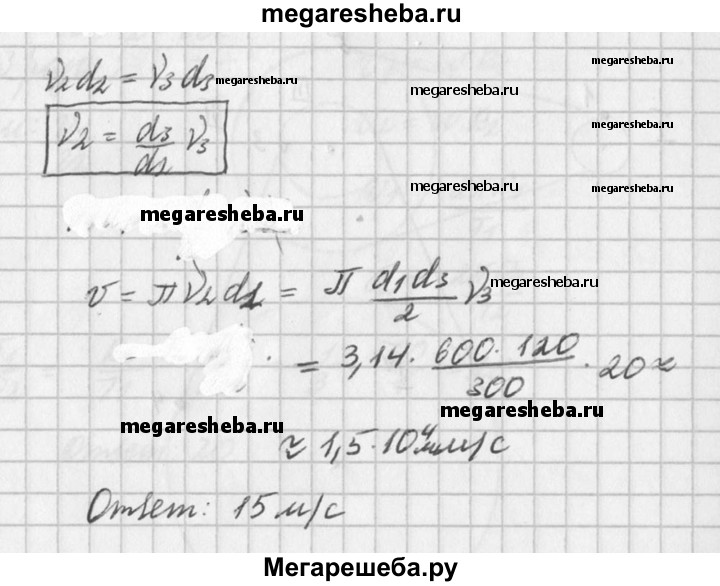 megaresheba.ru
ν₂d₂ = ν₃d₃ megaresheba.ru
megaresheba.ru
ν₂ = d₃/d₂ ν₃
megaresheba.ru
megaresheba.ru
megaresheba.ru
v = πν₂d₁ = π d₁d₃/2 ν₃ megaresheba.ru
= 3,14 · 600·120/300 · 20 ≈
megaresheba.ru
megaresheba.ru
≈ 1,5·10⁴ мм/с
Ответ: 15 м/с
Мегарешеба.ру